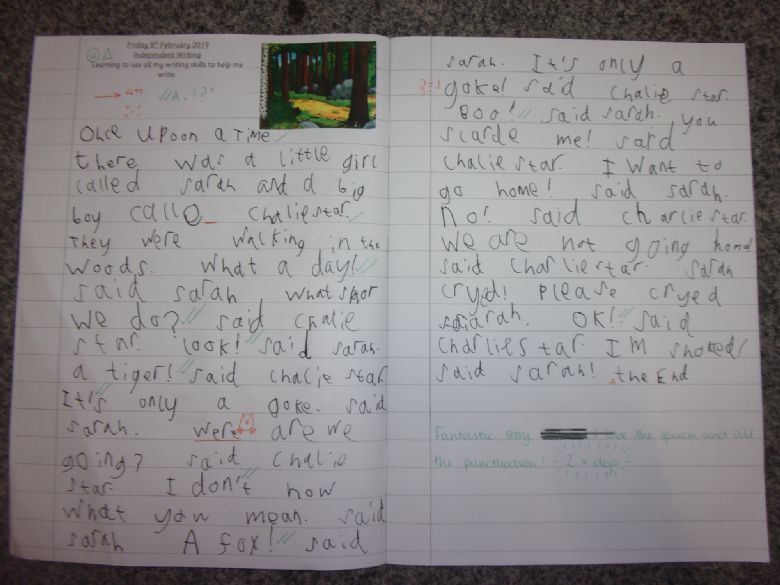 Friday 8th February 2019
Independent Writing
Learning to use all my writing skills to help me
write
A . ! ?
Once upon a time
there was a little girl
called sarah and a big
boy calld charliestar.
They were walking in the
woods. What a day!
said sarah what
we do? said chalie
star. look! said sarah.
a tiger! said chalie star
It's only a goke. said
sarah. were are we
going? said chalie
star. I don't now
what you mean. said
sarah. A fox! said
sarah. It's only a
goke! said chalie star.
Boo! said sarah. you
scarde me! said
chalie star. I want to
go home! said sarah.
no! said charliestar.
we are not going home
said charliestar. sarah
cryed! please cryed
sarah. OK! said
charliestar I M shoked!
said sarah! the End
Fantastic story. I love the speech and all
the punctuation! 2 x dojo